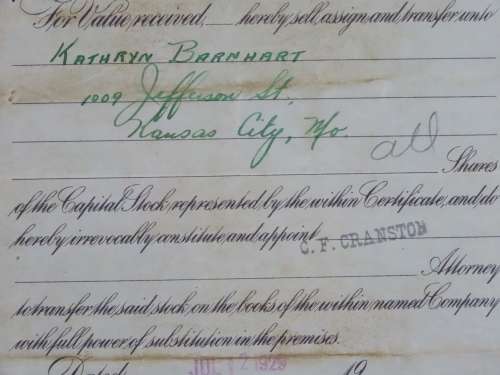 For Value received, hereby sell, assign and transfer unto
KATHRYN BARNHART
1009 Jefferson St.
Kansas City, Mo.
all Shares
of the Capital Stock represented by the within Certificate, and do
hereby irrevocably constitute and appoint
C. F. CRANSTON
Attorney
to transfer the said stock on the books of the within named Company
with full power of substitution in the premises.
Dated JUL 12 1929 19